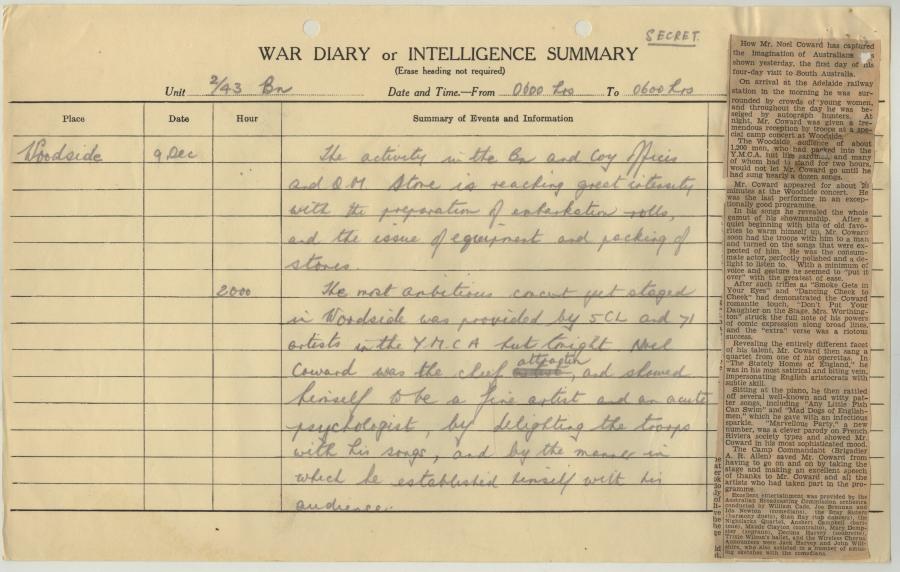 SECRET.
WAR DIARY or INTELLIGENCE SUMMARY
(Erase heading not required)
Unit 2/43 Bn Date and Time.—From 0600 hrs To 0600 hrs
Place Date Hour Summary of Events and Information
Woodside 9 Dec The activity in the Bn and Coy Offices
and Q.M. Store is reaching great intensity
with the preparation of embarkation rolls,
and the issue of equipment and packing of
stores.
2000 The most ambitious concert yet staged
in Woodside was provided by 5CL and 71
artists in the Y.M.C.A hut tonight. Noel
Coward was the chief attraction, and showed
himself to be a fine artist and an acute
psychologist, by delighting the troops
with his songs, and by the manner in
which he established himself with his
audience.
How Mr. Noel Coward has captured
the imagination of Australians was
shown yesterday, the first day of his
four-day visit to South Australia.
On arrival at the Adelaide railway
station in the morning he was sur-
rounded by crowds of young women,
and throughout the day he was be-
seiged by autograph hunters. At
night, Mr. Coward was given a tre-
mendous reception by troops at a spe-
cial camp concert at Woodside.
The Woodside audience of about
1,200 men, who had packed into the
Y.M.C.A. hut like sardines, and many
of whom had to stand for two hours,
would not let Mr. Coward go until he
had sung nearly a dozen songs.
Mr. Coward appeared for about
minutes at the Woodside concert. He
was the last performer in an excep-
tionally good programme.
In his songs he revealed the whole
gamut of his showmanship. After a
quiet beginning with bits of old favo-
rites to warm himself up, Mr. Coward
soon had the troops with him to a man
and turned on the songs that were ex-
pected of him. He was the consum-
mate actor, perfectly polished a de-
light to listen to. With a minimum of
voice and gesture he seemed to "put it
over" with the greatest of ease.
After such trifles as "Smoke Gets in
Your Eyes" and "Dancing Cheek to
Cheek" had demonstrated the Coward
romantic touch, "Don't Put Your
Daughter on the Stage, Mrs. Worthing-
ton" struck the full note of his powers
of comic expression along broad lines,
and the "extra" verse was a riotous
success.
Revealing the entirely different facet
of his talent, Mr. Coward then sang a
quartet from one of his operettas. In
"The Stately Homes of England," he
was in his most satirical and biting vein,
impersonating English aristocrats with
subtle skill.
Sitting at the piano, he then rattled
off several well-known and witty pat-
ter songs, including "Any Little Fish
Can Swim" and "Mad Dogs of English-
men," which he gave with an infectious
sparkle. "Marvellous Party," a new
number, was a clever parody on French
Riviera society types and showed Mr.
Coward in his most sophisticated mood.
The Camp Commandant (Brigadier
A. R. Allen) saved Mr. Coward from
having to go on and on by taking the
stage and making an excellent speech
of thanks to Mr. Coward and all the
artists who had taken part in the pro-
gramme.
Excellent entertainment was provided by the
Australian Broadcasting Commission orchestra
conducted by William Cade, Joe Brennan and
Ida Newton (comedians), the Bray Sisters
(harmony duets), Stan Ray (tap dancer), the
Nightlarks Quartet, Ambert Campbell (bari-
tone), Maude Clayton (contralto), Mary Demp-
ster (soprano), Decima Harvey (soubrette),
Trixie Wilson's ballet, and the Wireless Chorus.
Announcers were Jack Harvey and John Wilt-
shire, who also assisted in a number of amus-
ing sketches with the comedians.